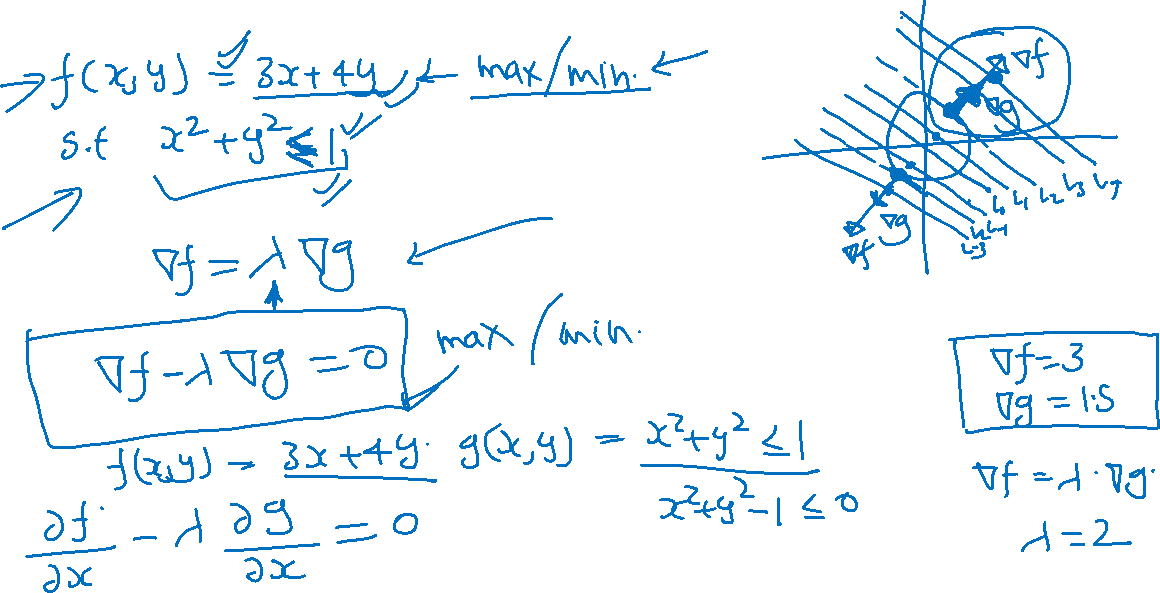 f(x,y) = 3x+4y, ← max/min. ←
s.t x²+y² ≤ 1,
∇f = λ ∇g ←
∇f - λ ∇g = 0
max/min.
f(x,y) - 3x+4y. g(x,y) = x²+y² ≤ 1
x²+y²-1 ≤ 0
∂f/∂x - λ ∂g/∂x = 0
∇f
∇g
L1 L2 L3
∇g
∇f
L-3
∇f=3
∇g = 1.5
∇f = λ·∇g.
λ=2